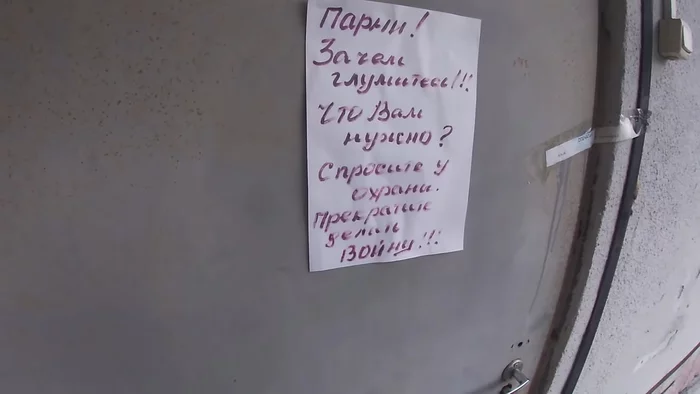 Парни!
Зачем
глумитесь!!!
Что Вам
нужно?
Спросите у
охрани.
Прекратите
делать
войну!!!